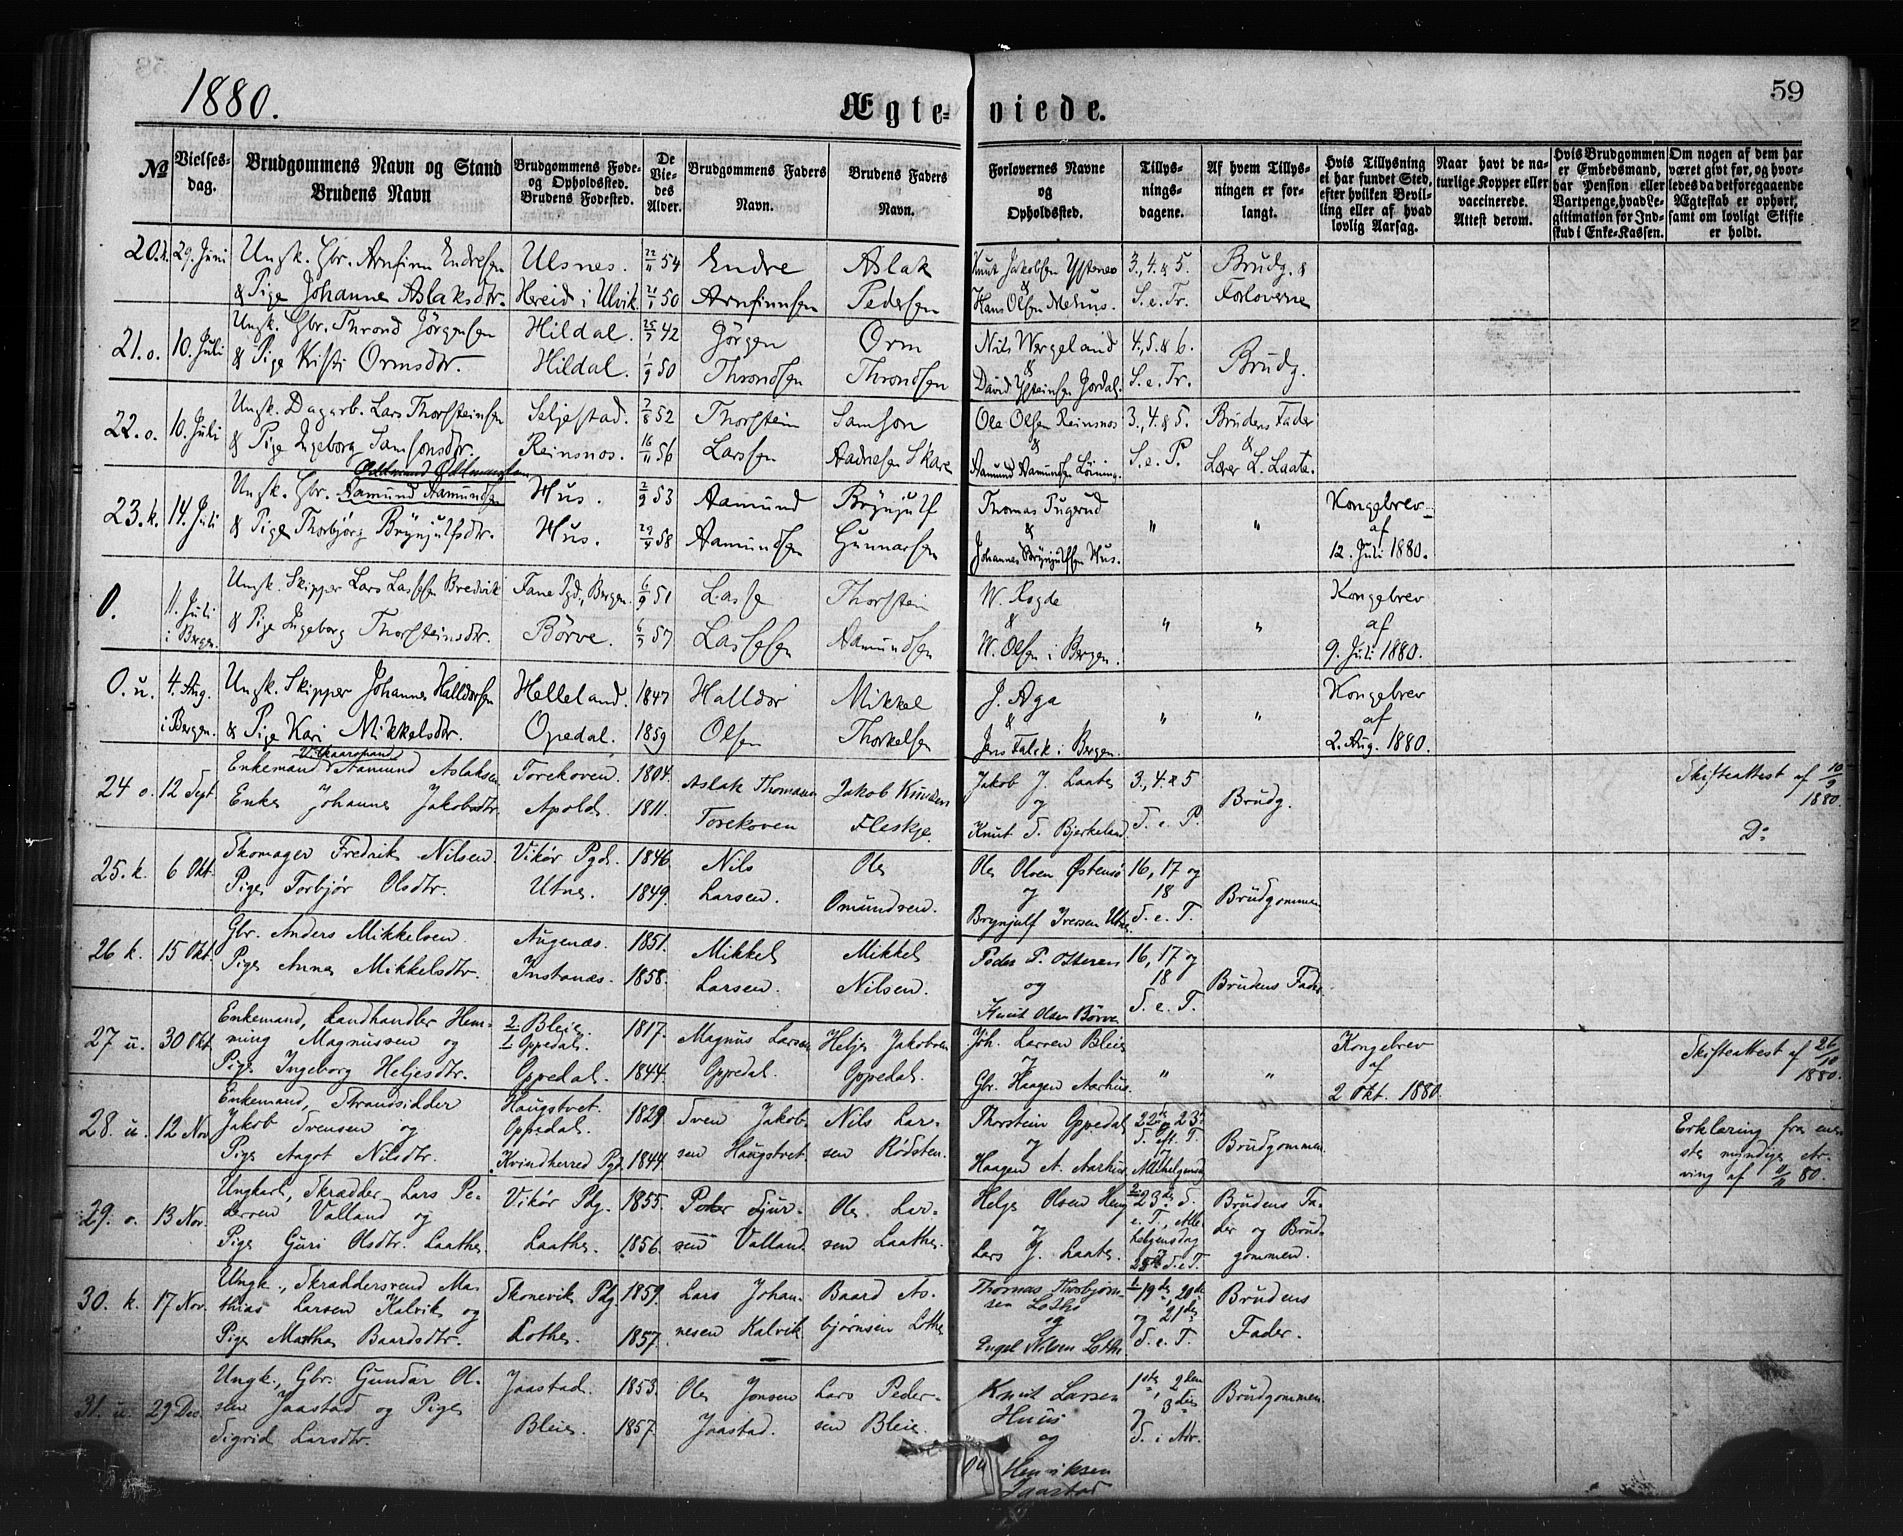 1880.
Ægteviede.
59
No
Vielses-dag.
Brudgommens Navn og Stand
Brudens Navn
Brudgommens Føde- og Opholdssted.
Brudens Fødested.
De Viedes Alder.
Brudgommens Faders Navn.
Brudens Faders Navn.
Forlovernes Navne og Opholdssted.
Tillysningsdagene.
Af hvem Tillysningen er forlangt.
Hvis Tillysning ei har fundet Sted, efter hvilken Bevilling eller af hvad lovlig Aarsag.
Naar havt de naturlige Kopper eller vaccinerede. Attest derom.
Hvis Brudgommen er Embedsmand, har Pension eller Vartpenge, hvad Legitimation for Indskud i Enke-Kassen.
Om nogen af dem har været givt før, og hvorledes da det foregaaende Ægteskab er ophørt, samt om lovligt Skifte er holdt.
20.k. 29. Juni Ungk. Gbr. Arnfinn Endresen Ulsnes. 22/11 54 Endre Aslak Knut Jakobsen 3., 4. & 5. Brudg. &
& Pige Johanne Aslaksdtr. Hereid i Ulvik 50 Arnfinnsen Pedersen & Hans Olsen Mehus. S. e. Tr. Forloverne
21. o. 10. Juli Ungk. Gbr. Thrond Jørgensen Hildal. 42 Jørgen Orm Nils Wergeland 4., 5. & 6. Brudg.
& Pige Kristi Ormsdtr. Hildal. 1/9 50 Throndsen Throndsen & David Ysteinsen Jordal. S. e. Tr.
22. o. 10. Juli Ungk. Dagarb. Lars Thorsteinsen Seljestad. 2/8 52 Thorstein Samson Ole Olsen Reinsnos 3., 4. & 5. Brudens Fader
& Pige Ingeborg Samsonsdtr. Reinsnos. 16/11 56 Larssen Aadnesen Skare & Aamund Aamundsen Löining. S. e. P. & Lærer L. Laate.
Oddmund Oddmundsen
23. k. 14. Juli Ungk. Gbr. Aamund Aamundsen Hus. 2/9 53 Aamund Brynjulf Thomas Tugerud " " Kongebrev
& Pige Thorbjørg Brynjulfsdtr. Hus. 58 Aamundsen Gunnarsen & Johannes Brynjulfsen Hus. af 12. Juli 1880.
0. 11. Juli Ungk. Skipper Lars Lassesen Bredvik Fane Pgd., Bergen. 6/9 51 Lasse Thorstein W. Rogde " " Kongebrev
i Bergen. & Pige Ingeborg Thorsteinsdtr. Börve. 57 Lassesen Aamundsen & W. Olsen i Bergen. af 9. Juli 1880.
0. u. 4. Aug. Ungk. Skipper Johannes Halldorsen Helleland. 1847 Halldor Mikkel J. Aga " " Kongebrev
i Bergen. & Pige Kari Mikkelsdtr. Opedal. 1859 Olsen Thorkelsen & Jens Falck i Bergen. af 2. Aug. 1880.
Vilkaarsmand
24 o. 12 Sept. Enkemand Aamund Aslaksen Torekoven. 1804. Aslak Thomassen Jakob Knudsen Jakob J. Laate 3., 4. & 5 Brudg. Skifteattest af 10/9 1880.
Enke Johanne Jakobsdtr. Apold. 1811. Torekoven Fleskje. og Knut S. Bjerkeland. S. e. P. Do
25. k. 6 Okt. Skomager Fredrik Nilsen. Vikör Pgd. 1846. Nils Ole Ole Olsen Østensö 16, 17 og 18 Brudgommen
Pige Torbjør Olsdtr. Utne. 1849. Larsen. Omundsen. og Brynjulf Iversen Utne. S. e. T.
26 k. 15 Okt. Gbr. Anders Mikkelsen. Augenæs. 1851. Mikkel Mikkel Peder P. 16, 17 og 18 Brudens Fader.
Pige Anna Mikkelsdtr. Instanæs. 1858. Larsen. Nilsen. og Knut Olsen Börve S. e. T.
27 u. 30 Okt. Enkemand, Landhandler Hem- Bleie. 1817. Magnus Larsen Helje Jakobsen Joh. Larsen Bleie " " Kongebrev Skifteattest af 26/10 1880.
ming Magnussen og Oppedal. og af
Pige Ingeborg Heljesdtr. Oppedal. 1844. Oppedal. Oppedal. Gbr. Haagen Aarhus. 2 Okt. 1880.
28. u. 12 Nov. Enkemand, Strandsidder Haugstvet. 1829 Sven Jakob- Nils Lar- Thorstein Oppedal 22de, 23de Brudgommen. Erklæring fra ene-
Jakob Svensen og Oppedal. sen Haugstvet. sen Rödsten. og S. eft. T. ste myndige Ar-
Pige Aagot Nilsdtr. Kvindherred Pgd. 1844. Haagen A. Aarhus. Allehelgensdag ving af 80.
29. o. 13 Nov. Ungkarl, Skrædder Lars Pe- Vikör Pdg. 1855. Peder Sjur- Ole Lar- Helge Olsen 23de S. Brudens Fa-
dersen Valland og og e. T., Alle- der og Brud-
Pige Guri Olsdtr. Laathe. Laathe. 1856. sen Valland. sen Laathe. Lars J. Laate. helgensdag S. e. T. gommen.
30. k. 17 Nov. Ungk., Skræddersvend Ma- Skonevik Pdg. 1859. Lars Johan- Baard As- Thomas Thorbjørn- 19de, 20de Brudens
thias Larsen Kalvik og sen Lothe og og 21de Fader.
Pige Martha Baardsdtr. Lothe. 1857. nesen Kalvik bjørnsen Lothe Engel Nilsen Lothe S. e. T.
31. u. 29 Dec. Ungk., Gbr. Gundar Ol- Jaastad. 1853. Ole Jonsen Lars Peder- Knut Larsen 1ste, 2den Brudgommen.
sen Jaastad og Pige Huus og og 3die
Sigrid Larsdtr. Bleie. 1857. Jaastad. sen Bleie. S. i Adv.
Henriksen
Jaastad